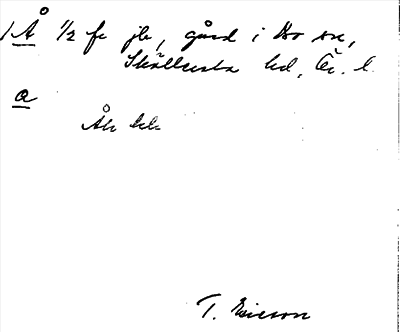 1 Å ½ fr jb, gård i Bo sn,
Skyllersta hd, Ör. l.
a
Åh hb
T. Ericson